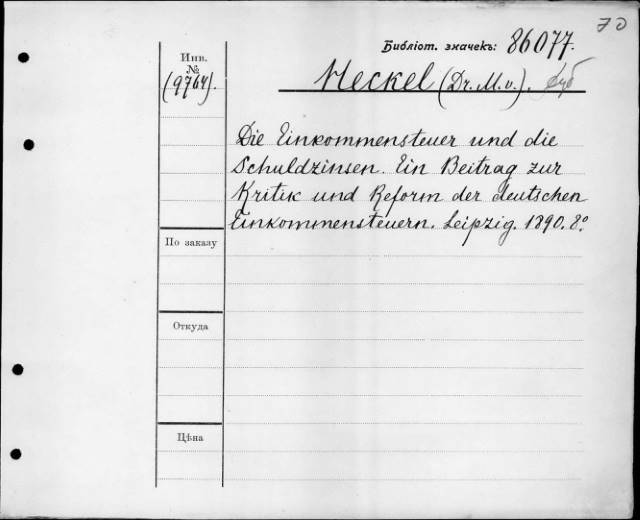 70
Библіот. значекъ: 86077.
Инв.
№
(9764).
Heckel (Dr. M. v.). Дуб
Die Einkommensteuer und die
Schuldzinsen. Ein Beitrag zur
Kritik und Reform der deutschen
Einkommensteuern. Leipzig. 1890. 8°
По заказу
Откуда
Цѣна